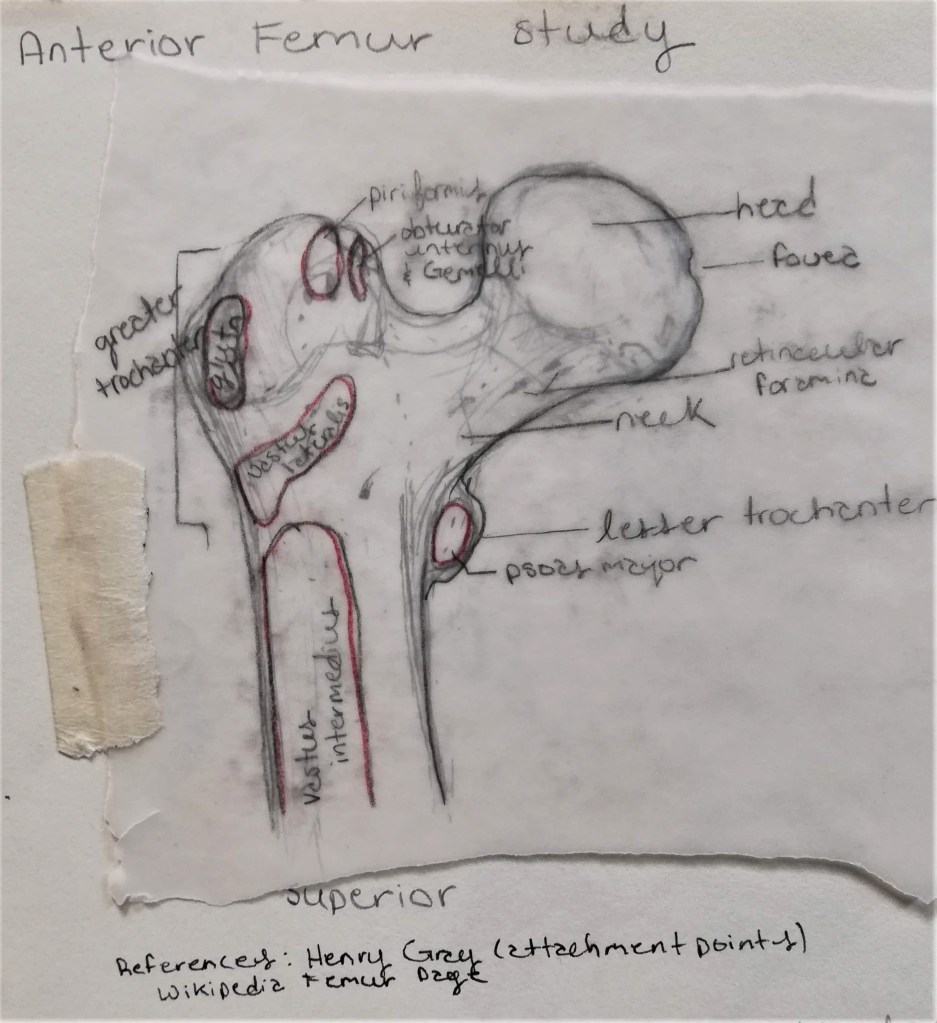 Anterior Femur study
piriformis
obturator
internus
& Gemelli
head
fovea
greater
trochanter
retinacular
foramina
neck
vastus
lateralis
lesser trochanter
psoas major
vastus
intermedius
superior
References: Henry Gray (attachment points)
Wikipedia Femur Page